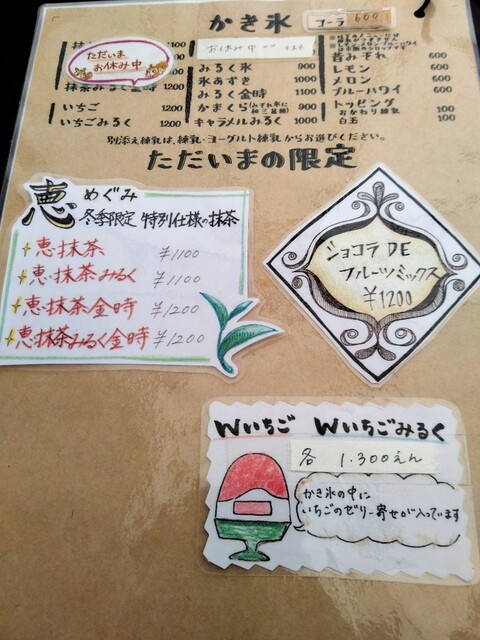 かき氷
コーラ 600
ただいま
お休み中
1100
1200
抹茶みるく金時 1200
いちご 1200
いちごみるく 1200
お休み中
みるく氷 900
氷あずき 1000
みるく金時 1100
かまくら 900
キャラメルみるく 1000
昔みぞれ 600
レモン 600
メロン 600
ブルーハワイ 600
トッピング
おかわり練乳 100
白玉 100
別添え練乳は、練乳・ヨーグルト練乳からお選びください。
ただいまの限定
恵 めぐみ
冬季限定 特別仕様の抹茶
恵抹茶 ¥1100
恵抹茶みるく ¥1100
恵抹茶金時 ¥1200
恵抹茶みるく金時 ¥1200
ショコラ DE
フルーツミックス
¥1200
Wいちご Wいちごみるく
各 1.300えん
かき氷の中に
いちごのゼリー寄せが入っています